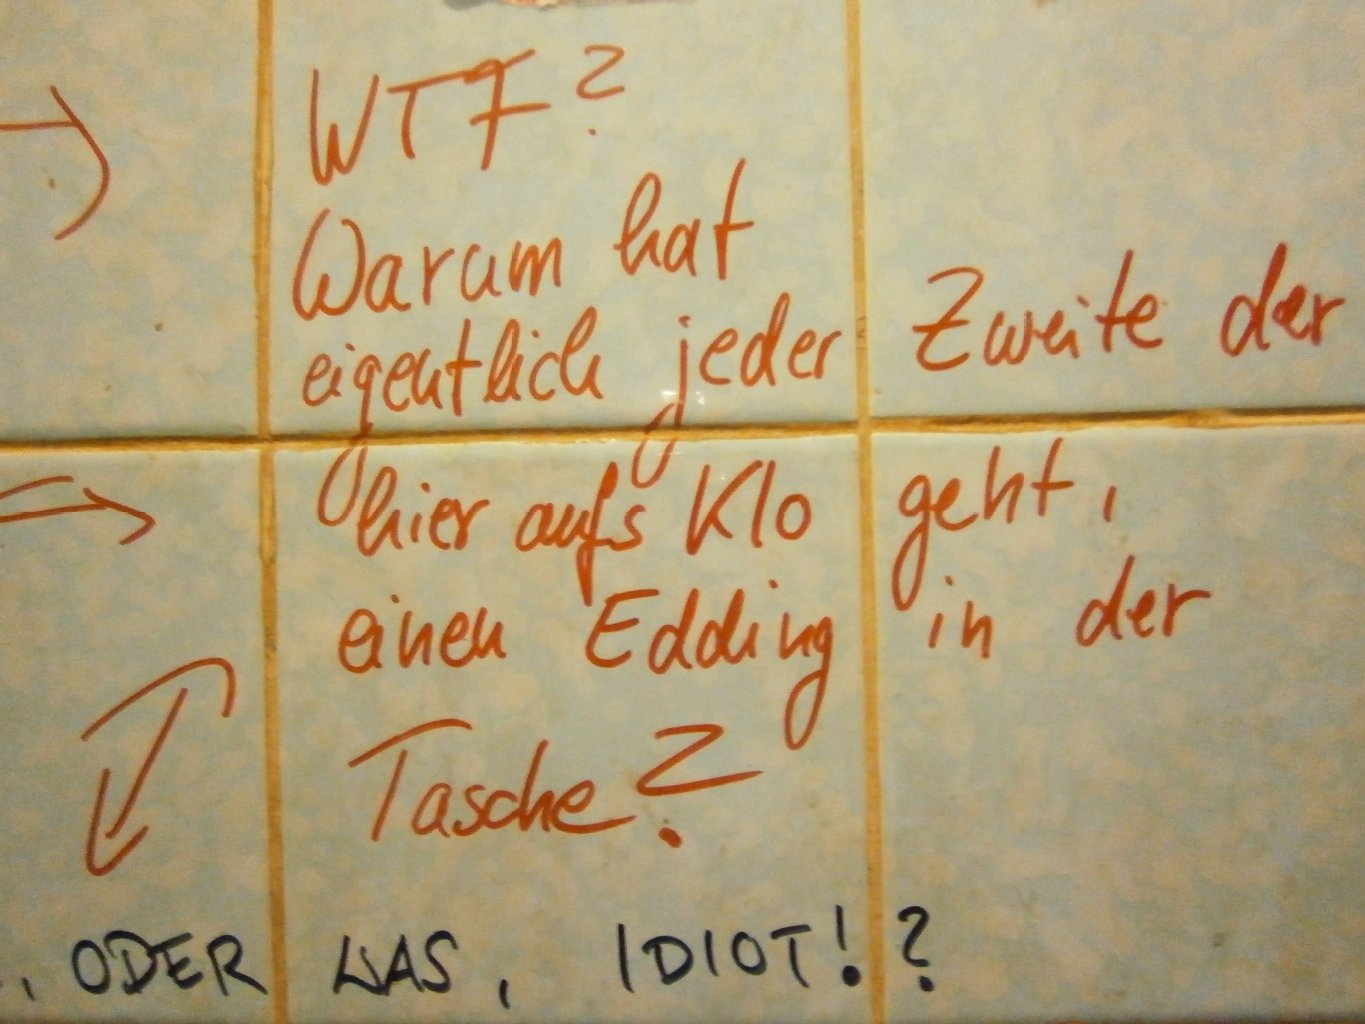 WTF?
Warum hat
eigentlich jeder Zweite der
hier aufs Klo geht,
einen Edding in der
Tasche?
, ODER WAS, IDIOT!?